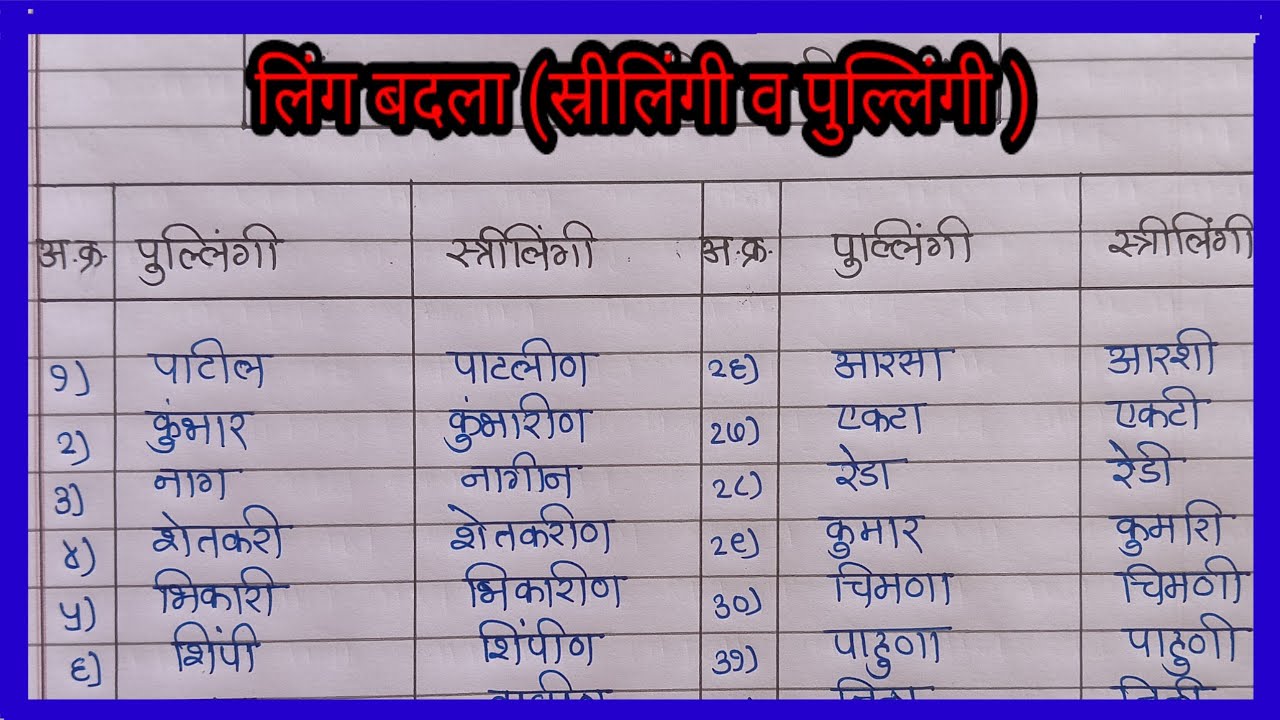 लिंग बदला (स्रीलिंगी व पुल्लिंगी )
अ.क्र. पुल्लिंगी स्त्रीलिंगी अ.क्र. पुल्लिंगी स्त्रीलिंगी
१) पाटील पाटलीण २६) आरसा आरशी
२) कुंभार कुंभारीण २७) एकटा एकटी
३) नाग नागीन २८) रेडा रेडी
४) शेतकरी शेतकरीण २९) कुमार कुमारी
५) भिकारी भिकारीण ३०) चिमणा चिमणी
६) शिंपी शिंपीण ३१) पाहुणा पाहुणी